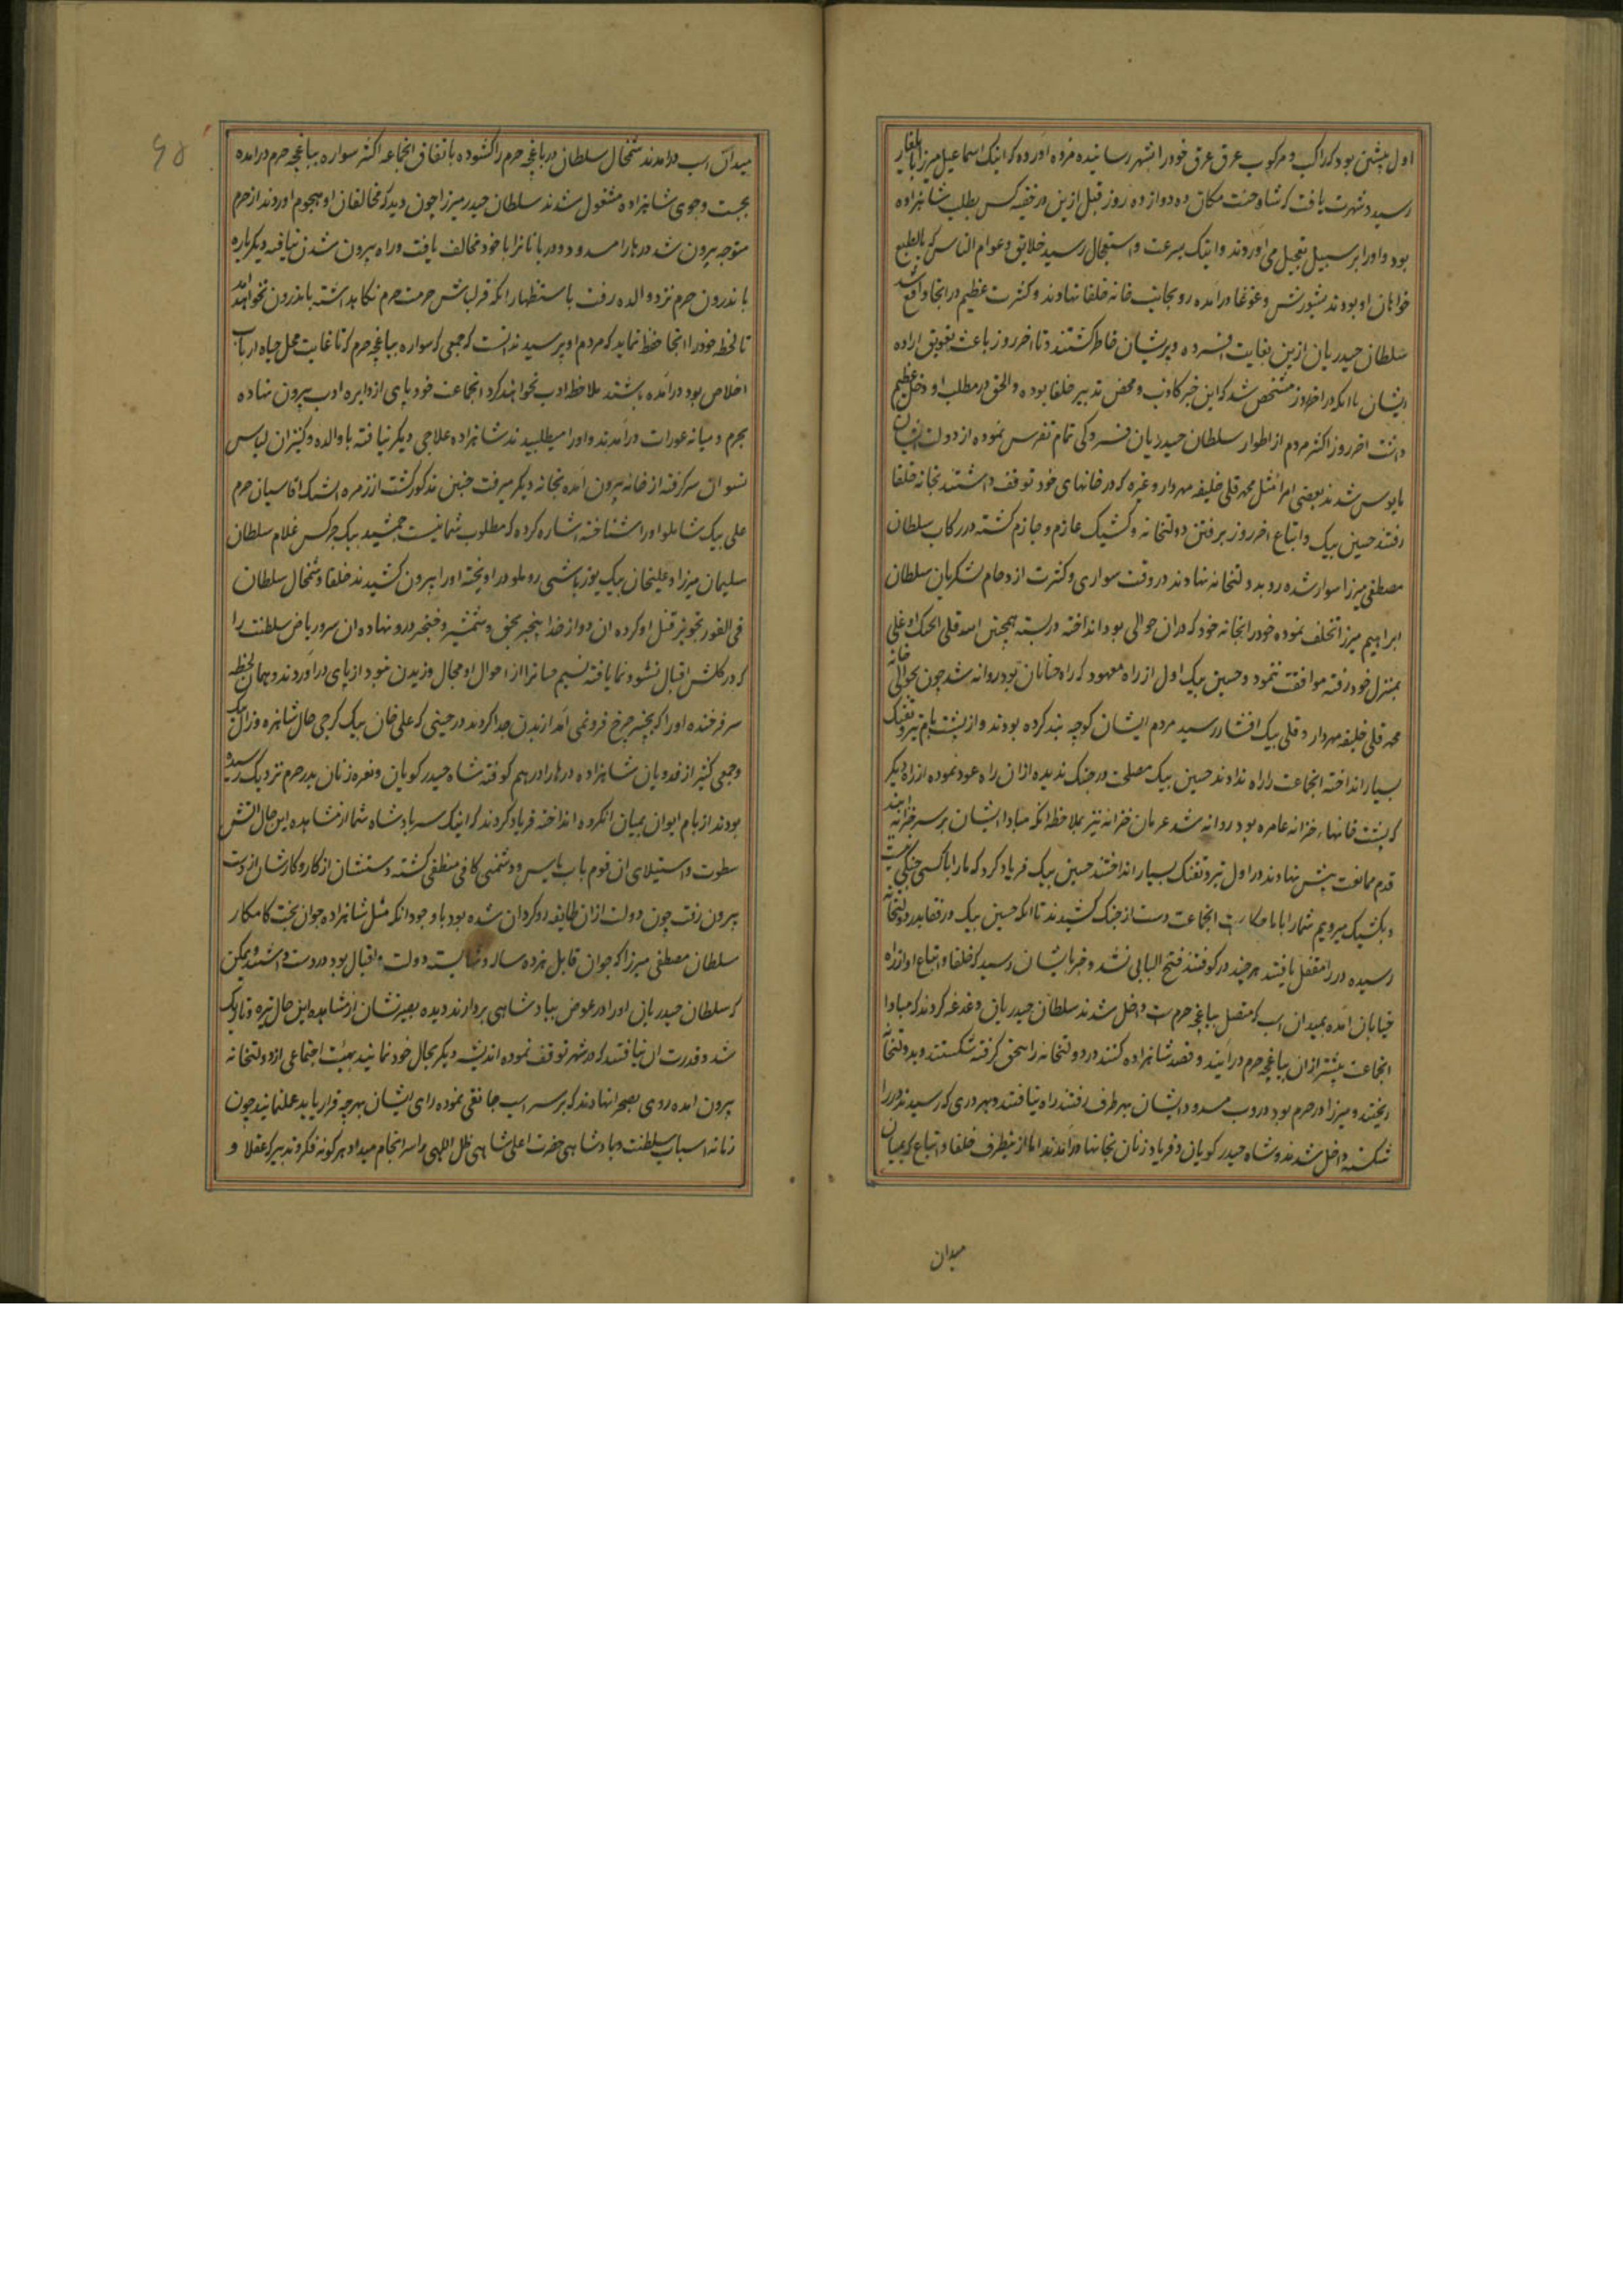 اول پیشین بود که راکب و مرکوب عرق عرق خود را بشهر رسانیده مژده آورده که اینک اسماعیل میرزا بایلغار
رسید و شهرت یافت که شاه جنت مکان ده دوازده روز قبل ازین در خفیه کس بطلب شاهزاده
بود و او را بر سبیل تعجیل می آوردند و اینک بسرعت و استعجال رسید خلایق و عوام الناس که بالطبع
خواهان او بودند بشورش و غوغا درآمده رو بجانب خانه خلفا نهادند و کثرت عظیم در انجا واقع شد
سلطان حیدریان ازین بغایت افسرده و پریشان خاطر گشتند و تا آخر روز باعث تعویق اراده
ایشان با آنکه در آخر روز مشخص شد که این خبر کاذب و محض تدبیر خلفا بوده و الحق در مطلب او دخل عظیم
داشت آخر روز اکثر مردم از اطوار سلطان حیدریان فسردگی تمام تفرس نموده از دولت ایشان
مایوس شدند بعضی امرا مثل محمد قلی خلیفه مهردار و غیره که در خانهای خود توقف داشتند بخانه خلفا
رفتند حسین بیک و اتباع آخر روز برفتن دولتخانه و کشیک عازم و جازم گشته در رکاب سلطان
مصطفی میرزا سوار شده رو بدولتخانه نهادند در وقت سواری و کثرت ازدحام لشکریان سلطان
ابراهیم میرزا تخلف نموده خود را بخانه خود که در آن حوالی بود انداخته در بسته همچنین الله قلی ایجک اوغلی
بمنزل خود رفته موافقت ننمود و حسین بیک اول از راه معهود که راه خیابان بود روانه شد چون بحوالی خانه
محمد قلی خلیفه مهردار و قلی بیک افشار رسید مردم ایشان کوچه بند کرده بودند و از پشت بام تیر و تفنگ
بسیار انداخته انجماعت را راه ندادند حسین بیک مصلحت در جنگ ندیده از آن راه عود نموده از راه دیگر
که پشت خانهاء خزانه عامره بود روانه شد عربان خزانه نیز بملاحظه آنکه مبادا ایشان بر سر خزانه آیند
قدم ممانعت پیش نهادند در اول تیر و تفنگ بسیار انداختند حسین بیک فریاد کرد که ما را با کسی جنگی نیست
و بکشیک میرویم شما را با ما چکارست انجماعت دست از جنگ کشیدند تا آنکه حسین بیک و رفقا بدر دولتخانه
رسیده در را مقفل یافتند هر چند در کوفتند فتح البابی نشد و خبر بایشان رسید که خلفا و اتباع او از راه
خیابان آمده بمیدان اسب که متصل بباغچه حرم است داخل شدند سلطان حیدریان دغدغه کردند که مبادا
انجماعت پیشتر از آن بباغچه حرم درآیند و قصد شاهزاده کنند در دولتخانه را بنجق گرفته شکستند و بدولتخانه
ریختند و میرزا در حرم بود و دروب مسدود ایشان بهر طرف رفتند راه نیافتند و بهر دری که رسیدند در را
شکسته داخل شدند و شاه حیدر گویان و فریاد زنان بخانها درآمدند اما از ینطرف خلفا و اتباع که بمیان
میدان
میدان اسب درآمدند شمخال سلطان در باغچه حرم را گشوده باتفاق انجماعه اکثر سواره بباغچه حرم درآمده
بجست و جوی شاهزاده مشغول شدند سلطان حیدر میرزا چون دید که مخالفان او هجوم آوردند از حرم
متوجه بیرون شد درها را مسدود و دربانانرا با خود مخالف یافت و راه بیرون شدن نیافته دیگر باره
باندرون حرم نزد والده رفت باستظهار آنکه قزلباش حرمت حرم نگاهداشته باندرون نخواهند آمد
تا لحظه خود را انجا حفظ نماید که مردم او برسیدند ندانست که جمعی که سواره بباغچه حرم که تا غایت محل جباه ارباب
اخلاص بود درآمده باشند ملاحظه ادب نخواهند کرد انجماعت خود پای از دایره ادب بیرون نهاده
بحرم و میانه عورات درآمدند و او را میطلبیدند شاهزاده علاجی دیگر نیافته با والده و کنیزان لباس
نسوان سر گرفته از خانه بیرون آمده بخانه دیگر میرفت چنین مذکور گشت از زمره ایشک آقاسیان حرم
علی بیک شاملو او را شناخته اشاره کرده که مطلوب شما اینست جمشید بیک چرکس غلام سلطان
سلیمان میرزا و علیخان بیک یوزباشی روملو در آویخته او را بیرون کشیدند خلفا و شمخال سلطان
فی الفور تجویز قتل او کرده آن دو از خدا بیخبر بحق و شمشیر و خنجر درو نهاده آن سرو ریاض سلطنت را
که در گلشن اقبال نشو و نما یافته نسیم صبا را از احوال او مجال وزیدن نبود از پای درآوردند و همان لحظه
سر فرخنده او را که بچنبر چرخ فرو نمی آمد از بدن جدا کردند در حینی که علی خان بیک گرجی خال شاهزاده و زال بیک
و جمعی کثیر از فدویان شاهزاده درها را در هم کوفته شاه حیدر گویان و نعره زنان بدر حرم نزدیک رسیده
بودند از بام ایوان بمیان آنگروه انداخته فریاد کردند که اینک سر پادشاه شما از مشاهده این حال آتش
سطوت و استیلای آن قوم بآب یأس و دشمن کامی منطفی گشته دستشان از کار و کارشان از دست
بیرون رفت چون دولت از آن طایفه روگردان شده بود با وجود آنکه مثل شاهزاده جوان بخت کامکار
سلطان مصطفی میرزا که جوان قابل هژده ساله و شایسته دولت و اقبال بود در دست داشتند و ممکن
که سلطان حیدریان او را در عوض بپادشاهی بردارند دیده بصیرتشان از مشاهده این حال تیره و تاریک
شد و قدرت آن نیافتند که در شهر توقف نموده اندیشه دیگر بحال خود نمایند بهیئت اجتماعی از دولتخانه
بیرون آمده روی بصحرا نهادند که بر سر اسب جانقی نموده رای ایشان بهرچه قرار یابد عمل نمایند چون
زمانه اسباب سلطنت و پادشاهی حضرت اعلی شاهی ظل اللهی را سرانجام میداد هر گونه فکر و تدبیر که عقلا و